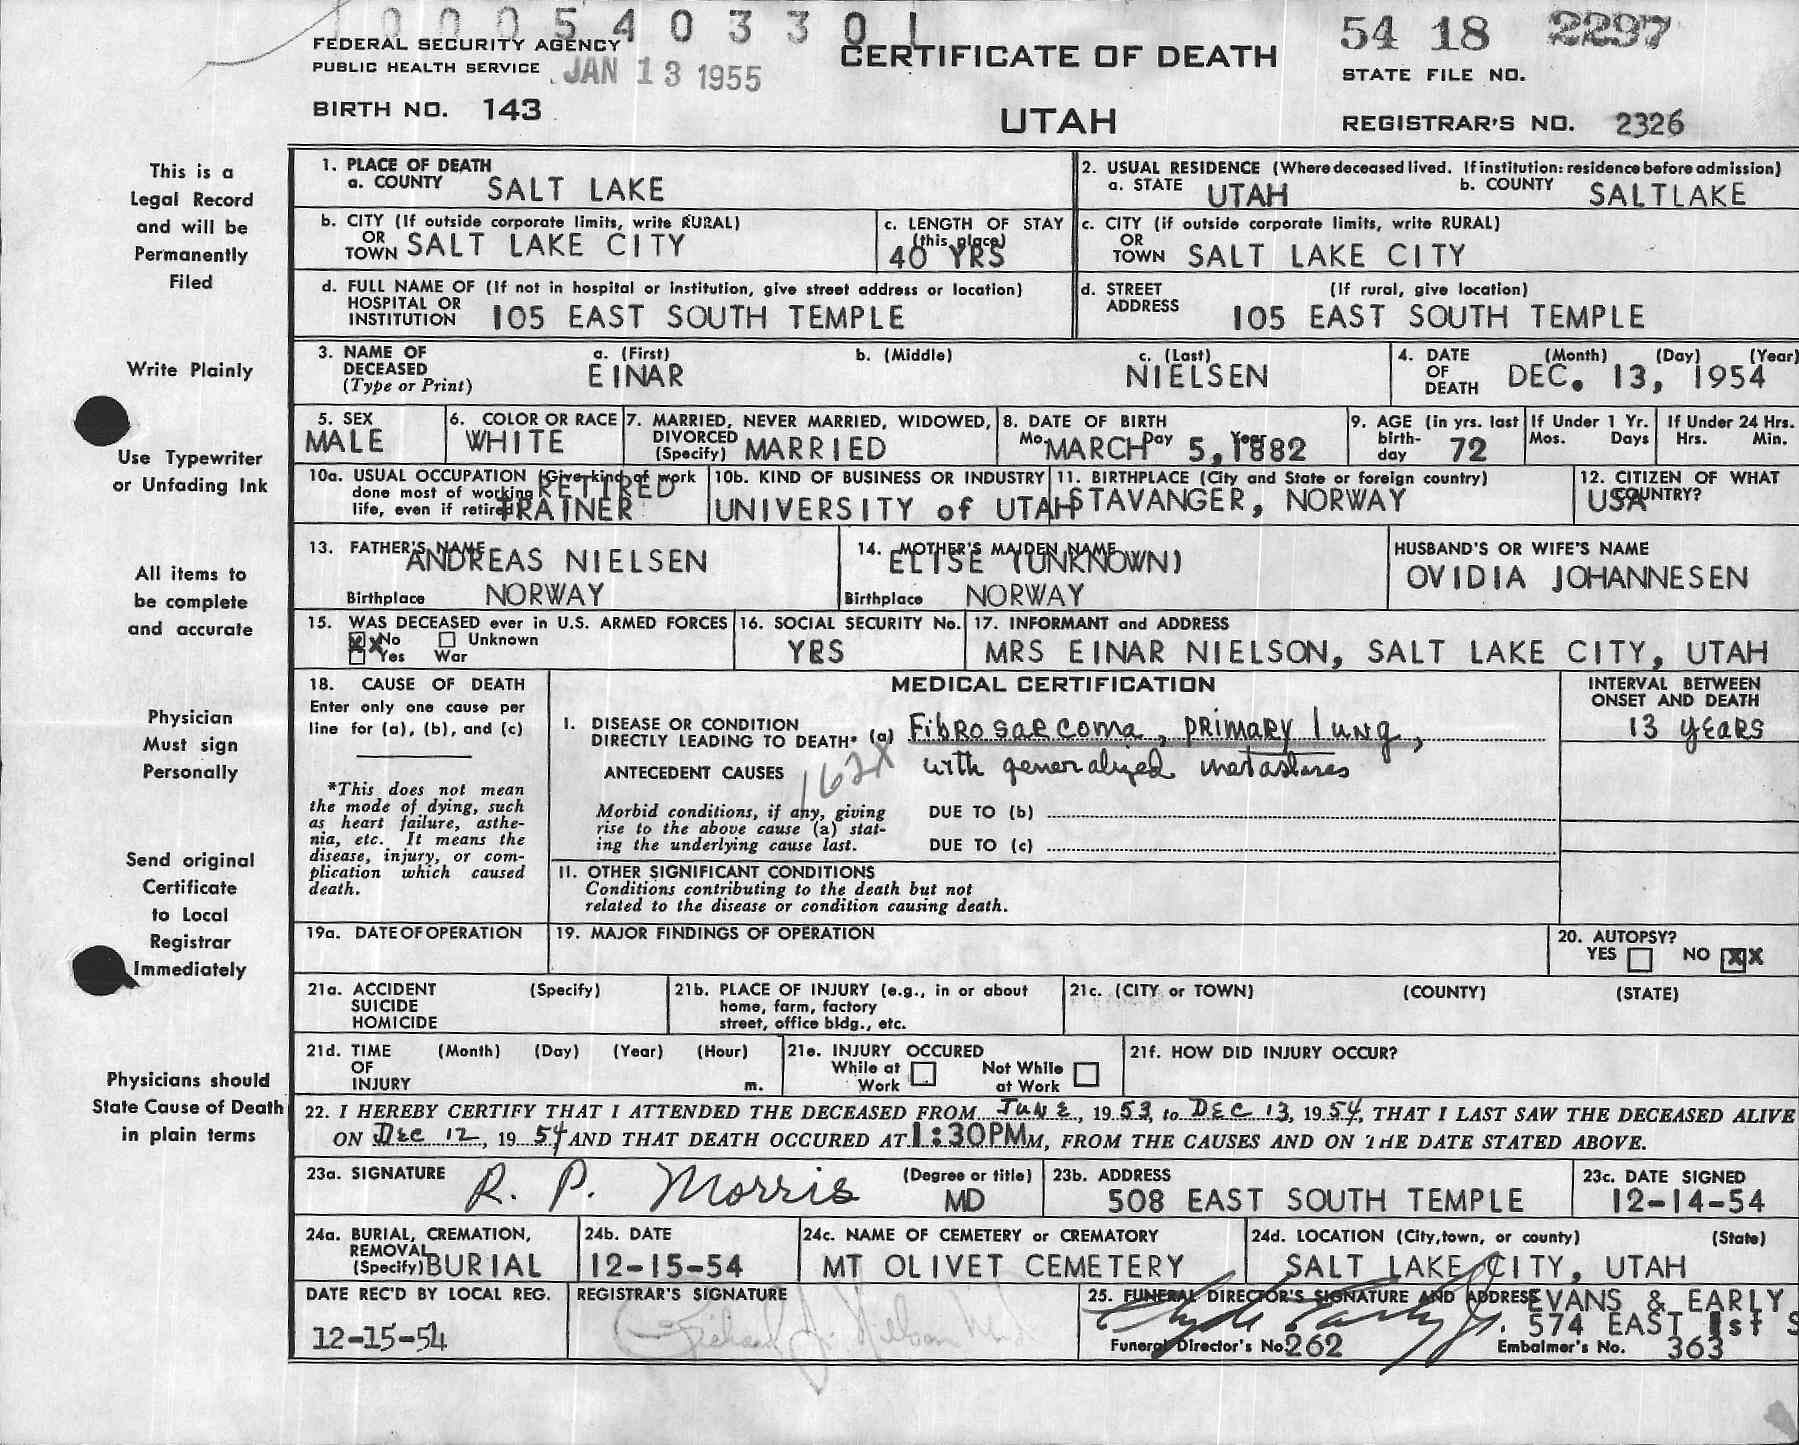 1 0 0 0 5 4 0 3 3 0 1
FEDERAL SECURITY AGENCY
PUBLIC HEALTH SERVICE JAN 13 1955
BIRTH NO. 143
CERTIFICATE OF DEATH
UTAH
54 18 2297
STATE FILE NO.
REGISTRAR'S NO. 2326
This is a
Legal Record
and will be
Permanently
Filed
Write Plainly
Use Typewriter
or Unfading Ink
All items to
be complete
and accurate
Physician
Must sign
Personally
Send original
Certificate
to Local
Registrar
Immediately
Physicians should
State Cause of Death
in plain terms
1. PLACE OF DEATH
a. COUNTY SALT LAKE
2. USUAL RESIDENCE (Where deceased lived. If institution: residence before admission)
a. STATE UTAH b. COUNTY SALTLAKE
b. CITY (If outside corporate limits, write RURAL)
OR
TOWN SALT LAKE CITY
c. LENGTH OF STAY
(this place)
40 YRS
c. CITY (if outside corporate limits, write RURAL)
OR
TOWN SALT LAKE CITY
d. FULL NAME OF (If not in hospital or institution, give street address or location)
HOSPITAL OR
INSTITUTION 105 EAST SOUTH TEMPLE
d. STREET (If rural, give location)
ADDRESS 105 EAST SOUTH TEMPLE
3. NAME OF DECEASED (Type or Print)
a. (First) b. (Middle) c. (Last)
EINAR NIELSEN
4. DATE OF DEATH (Month) (Day) (Year)
DEC. 13, 1954
5. SEX
MALE
6. COLOR OR RACE
WHITE
7. MARRIED, NEVER MARRIED, WIDOWED,
DIVORCED
(Specify) MARRIED
8. DATE OF BIRTH
Mo. Day Year
MARCH 5, 1882
9. AGE (in yrs. last
birth-
day 72
If Under 1 Yr.
Mos. Days
If Under 24 Hrs.
Hrs. Min.
10a. USUAL OCCUPATION (Give kind of work
done most of working
life, even if retired
RETIRED
TRAINER
10b. KIND OF BUSINESS OR INDUSTRY
UNIVERSITY of UTAH
11. BIRTHPLACE (City and State or foreign country)
STAVANGER, NORWAY
12. CITIZEN OF WHAT
COUNTRY?
USA
13. FATHER'S NAME
ANDREAS NIELSEN
Birthplace NORWAY
14. MOTHER'S MAIDEN NAME
ELISE (UNKNOWN)
Birthplace NORWAY
HUSBAND'S OR WIFE'S NAME
OVIDIA JOHANNESEN
15. WAS DECEASED ever in U.S. ARMED FORCES
XX No Unknown
Yes War
16. SOCIAL SECURITY No.
YES
17. INFORMANT and ADDRESS
MRS EINAR NIELSON, SALT LAKE CITY, UTAH
18. CAUSE OF DEATH
Enter only one cause per
line for (a), (b), and (c)
*This does not mean
the mode of dying, such
as heart failure, asthe-
nia, etc. It means the
disease, injury, or com-
plication which caused
death.
MEDICAL CERTIFICATION
INTERVAL BETWEEN
ONSET AND DEATH
I. DISEASE OR CONDITION
DIRECTLY LEADING TO DEATH* (a) Fibrosarcoma, primary lung, 13 years
with generalized metastases
ANTECEDENT CAUSES 162X
Morbid conditions, if any, giving
rise to the above cause (a) stat-
ing the underlying cause last.
DUE TO (b)
DUE TO (c)
II. OTHER SIGNIFICANT CONDITIONS
Conditions contributing to the death but not
related to the disease or condition causing death.
19a. DATE OF OPERATION
19. MAJOR FINDINGS OF OPERATION
20. AUTOPSY?
YES NO XX
21a. ACCIDENT (Specify)
SUICIDE
HOMICIDE
21b. PLACE OF INJURY (e.g., in or about
home, farm, factory
street, office bldg., etc.
21c. (CITY or TOWN) (COUNTY) (STATE)
21d. TIME (Month) (Day) (Year) (Hour)
OF
INJURY m.
21e. INJURY OCCURED
While at Work Not While at Work
21f. HOW DID INJURY OCCUR?
22. I HEREBY CERTIFY THAT I ATTENDED THE DECEASED FROM June, 1953, to Dec 13, 1954, THAT I LAST SAW THE DECEASED ALIVE
ON Dec 12, 1954 AND THAT DEATH OCCURED AT 1:30PM M, FROM THE CAUSES AND ON THE DATE STATED ABOVE.
23a. SIGNATURE R. P. Morris (Degree or title)
MD
23b. ADDRESS
508 EAST SOUTH TEMPLE
23c. DATE SIGNED
12-14-54
24a. BURIAL, CREMATION,
REMOVAL
(Specify) BURIAL
24b. DATE
12-15-54
24c. NAME OF CEMETERY or CREMATORY
MT OLIVET CEMETERY
24d. LOCATION (City, town, or county) (State)
SALT LAKE CITY, UTAH
DATE REC'D BY LOCAL REG.
12-15-54
REGISTRAR'S SIGNATURE
25. FUNERAL DIRECTOR'S SIGNATURE AND ADDRESS
EVANS & EARLY
574 EAST 1st S
Funeral Director's No. 262 Embalmer's No. 363